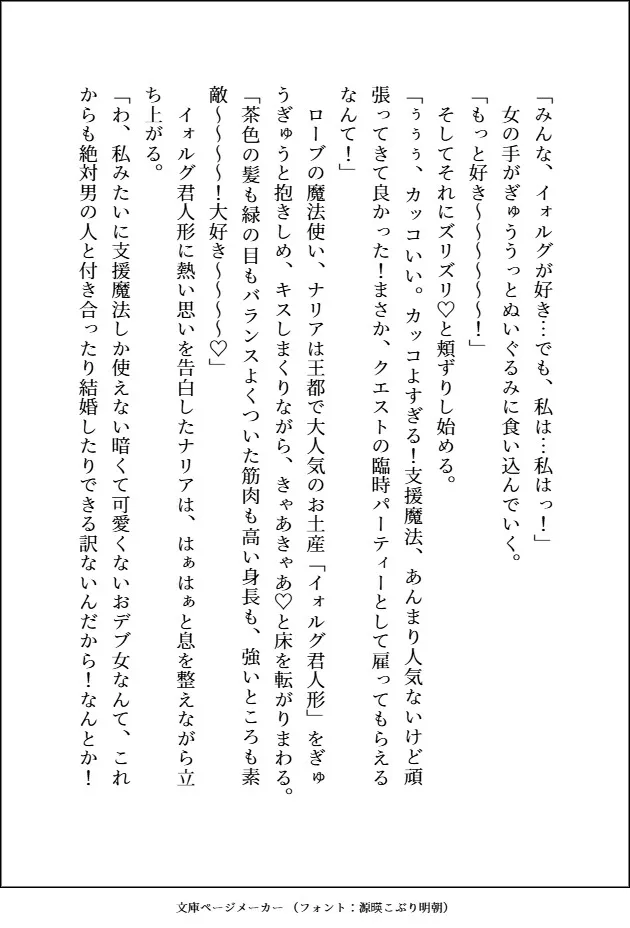 「みんな、イォルグが好き…でも、私は…私はっ！」
　女の手がぎゅううっとぬいぐるみに食い込んでいく。
「もっと好き〜〜〜〜〜〜！」
　そしてそれにズリズリ♡と頬ずりし始める。
「ぅぅぅ、カッコいい。カッコよすぎる！支援魔法、あんまり人気ないけど頑
張ってきて良かった！まさか、クエストの臨時パーティーとして雇ってもらえる
なんて！」
　ローブの魔法使い、ナリアは王都で大人気のお土産「イォルグ君人形」をぎゅ
うぎゅうと抱きしめ、キスしまくりながら、きゃあきゃあ♡と床を転がりまわる。
「茶色の髪も緑の目もバランスよくついた筋肉も高い身長も、強いところも素
敵〜〜〜〜！大好き〜〜〜〜♡」
　イォルグ君人形に熱い思いを告白したナリアは、はぁはぁと息を整えながら立
ち上がる。
「わ、私みたいに支援魔法しか使えない暗くて可愛くないおデブ女なんて、これ
からも絶対男の人と付き合ったり結婚したりできる訳ないんだから！なんとか！
文庫ページメーカー（フォント：源暎こぶり明朝）